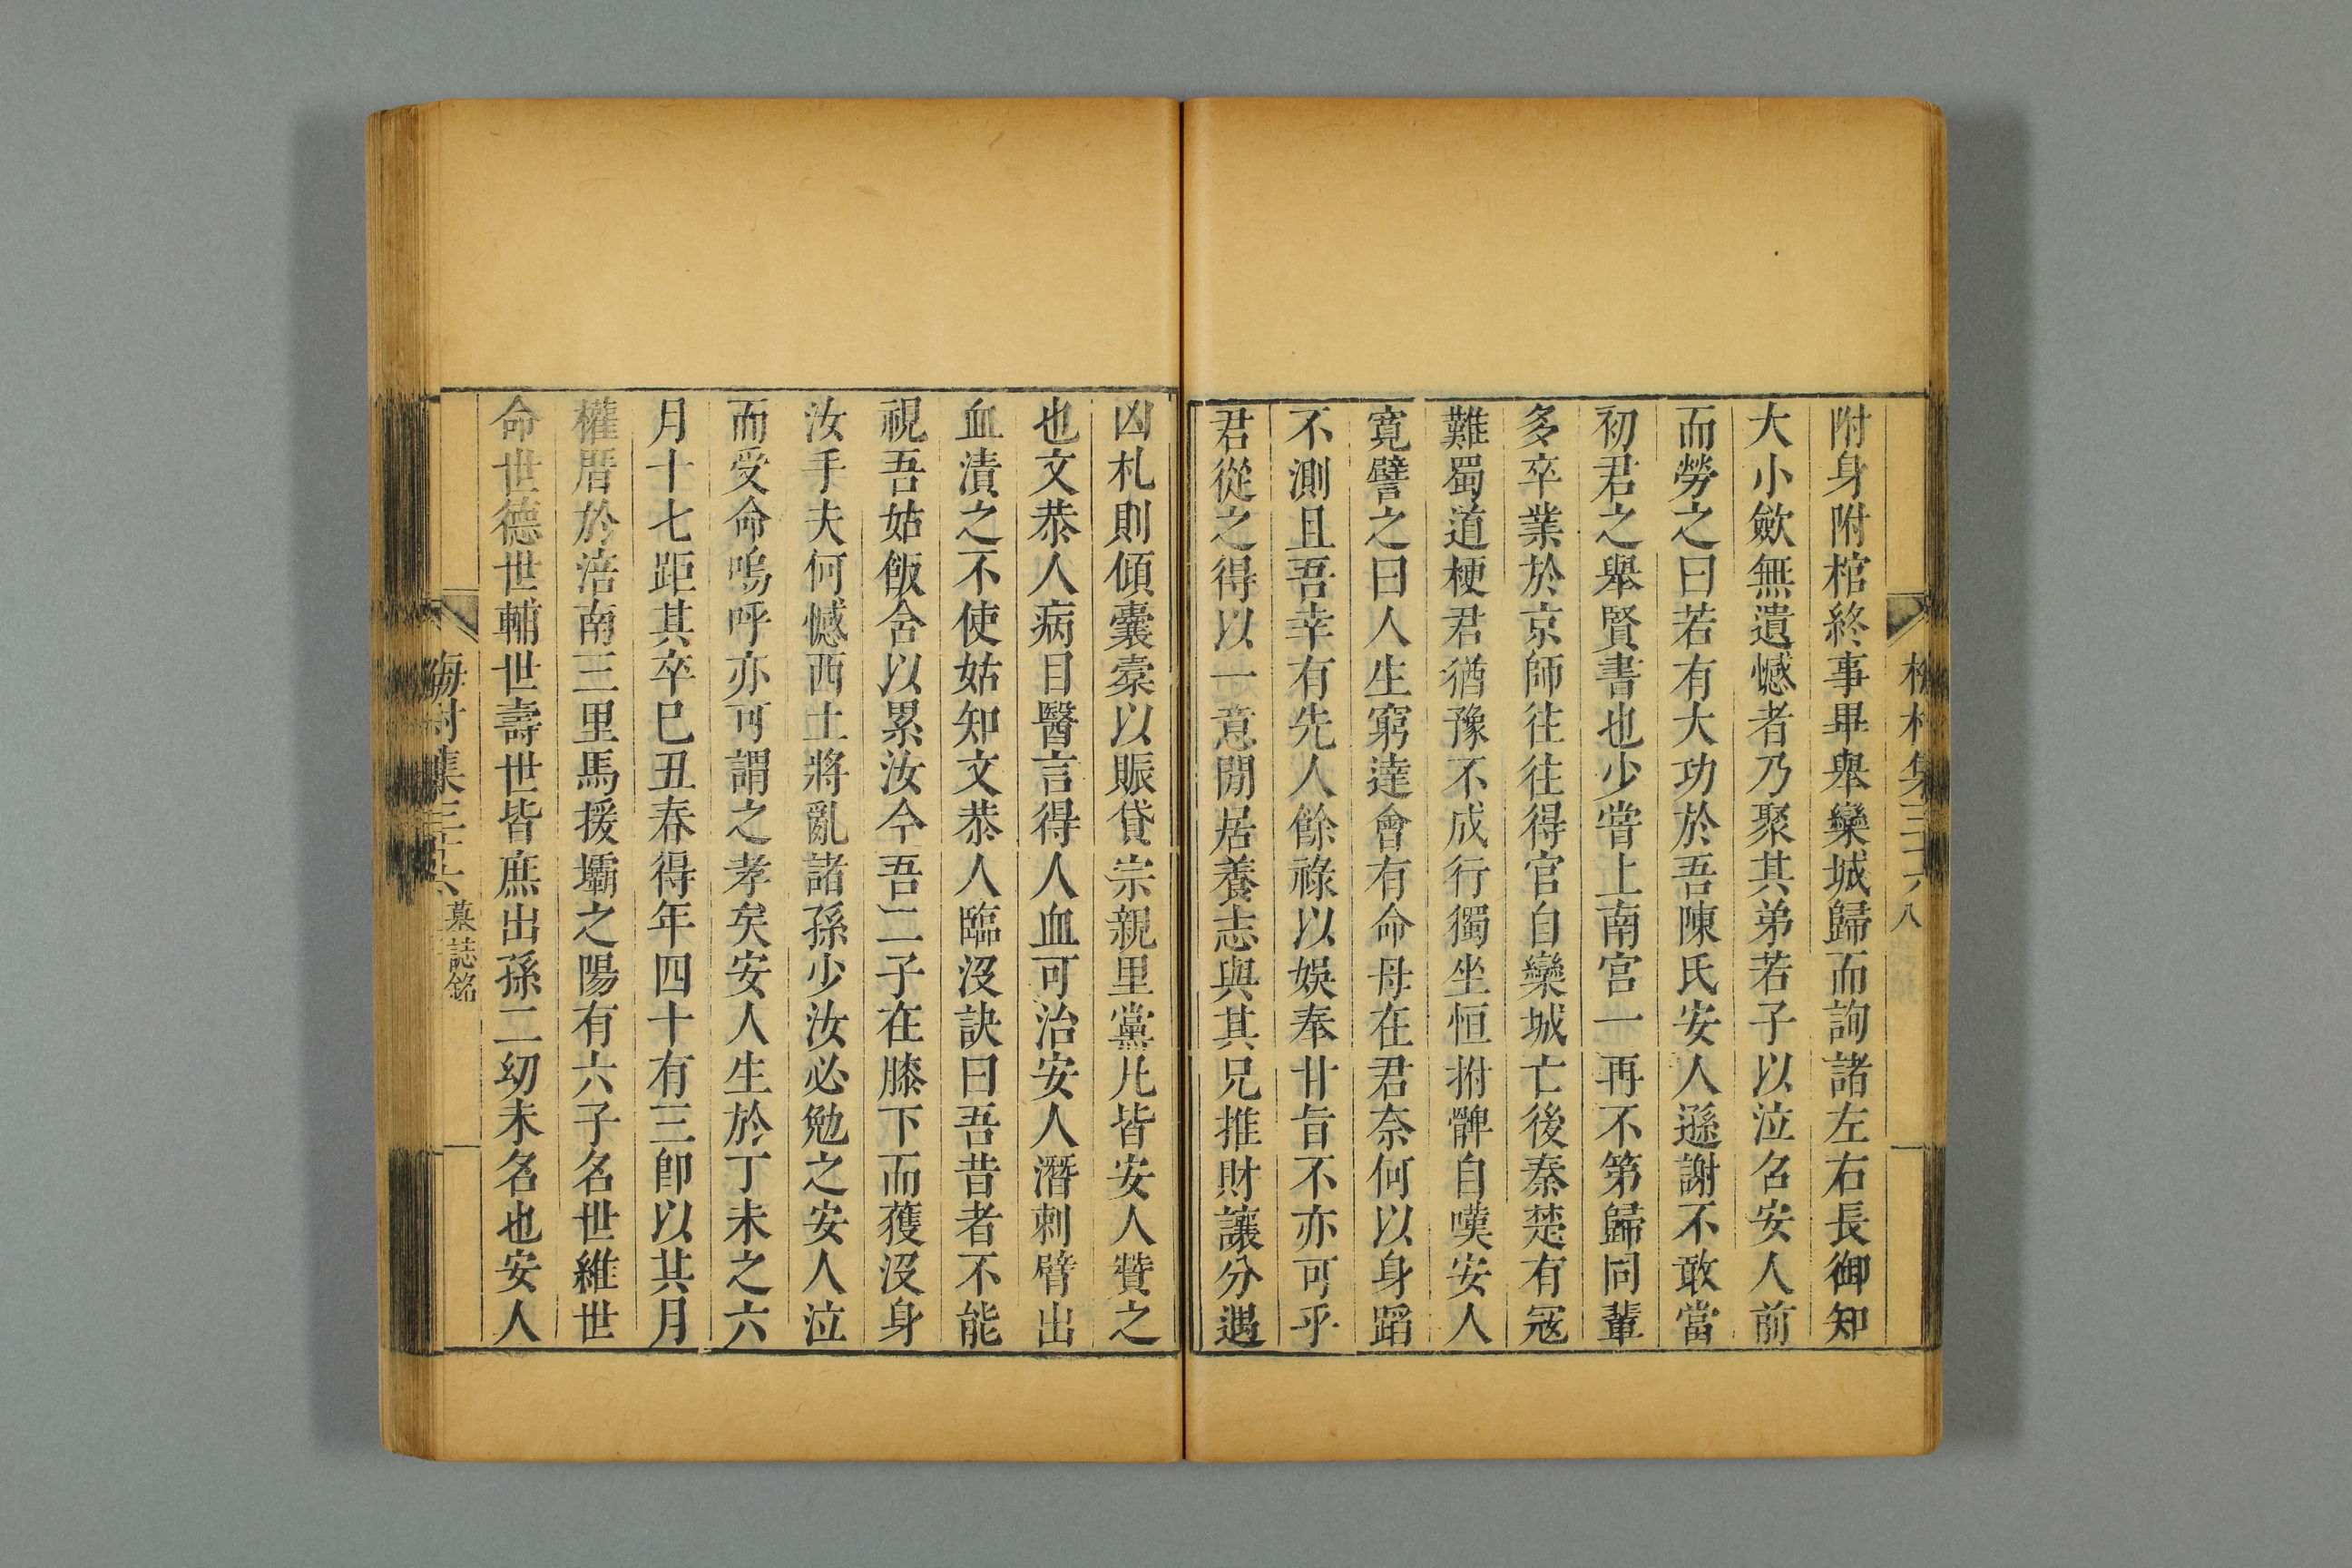 附身附棺終事畢舉欒城歸而詢諸左右長御知
大小歛無遺憾者乃聚其弟若子以泣名安人前
而勞之曰若有大功於吾陳氏安人遜謝不敢當
初君之舉賢書也少嘗上南宮一再不第歸同輩
多卒業於京師往往得官自欒城亡後秦楚有冦
難蜀道梗君猶豫不成行獨坐恒拊髀自嘆安人
寛譬之曰人生窮達會有命母在君奈何以身蹈
不測且吾幸有先人餘祿以娛奉甘旨不亦可乎
君從之得以一意閒居養志與其兄推財讓分遇
凶札則傾囊橐以賑貸宗親里黨凡皆安人贊之
也文恭人病目醫言得人血可治安人潛刺臂出
血漬之不使姑知文恭人臨沒訣曰吾昔者不能
視吾姑飯含以累汝今吾二子在膝下而獲沒身
汝手夫何憾西土將亂諸孫少汝必勉之安人泣
而受命嗚呼亦可謂之孝矣安人生於丁未之六
月十七距其卒巳丑春得年四十有三卽以其月
權厝於涪南三里馬援壩之陽有六子名世維世
命世德世輔世壽世皆庶出孫二幼未名也安人
梅村集三十六 墓誌銘